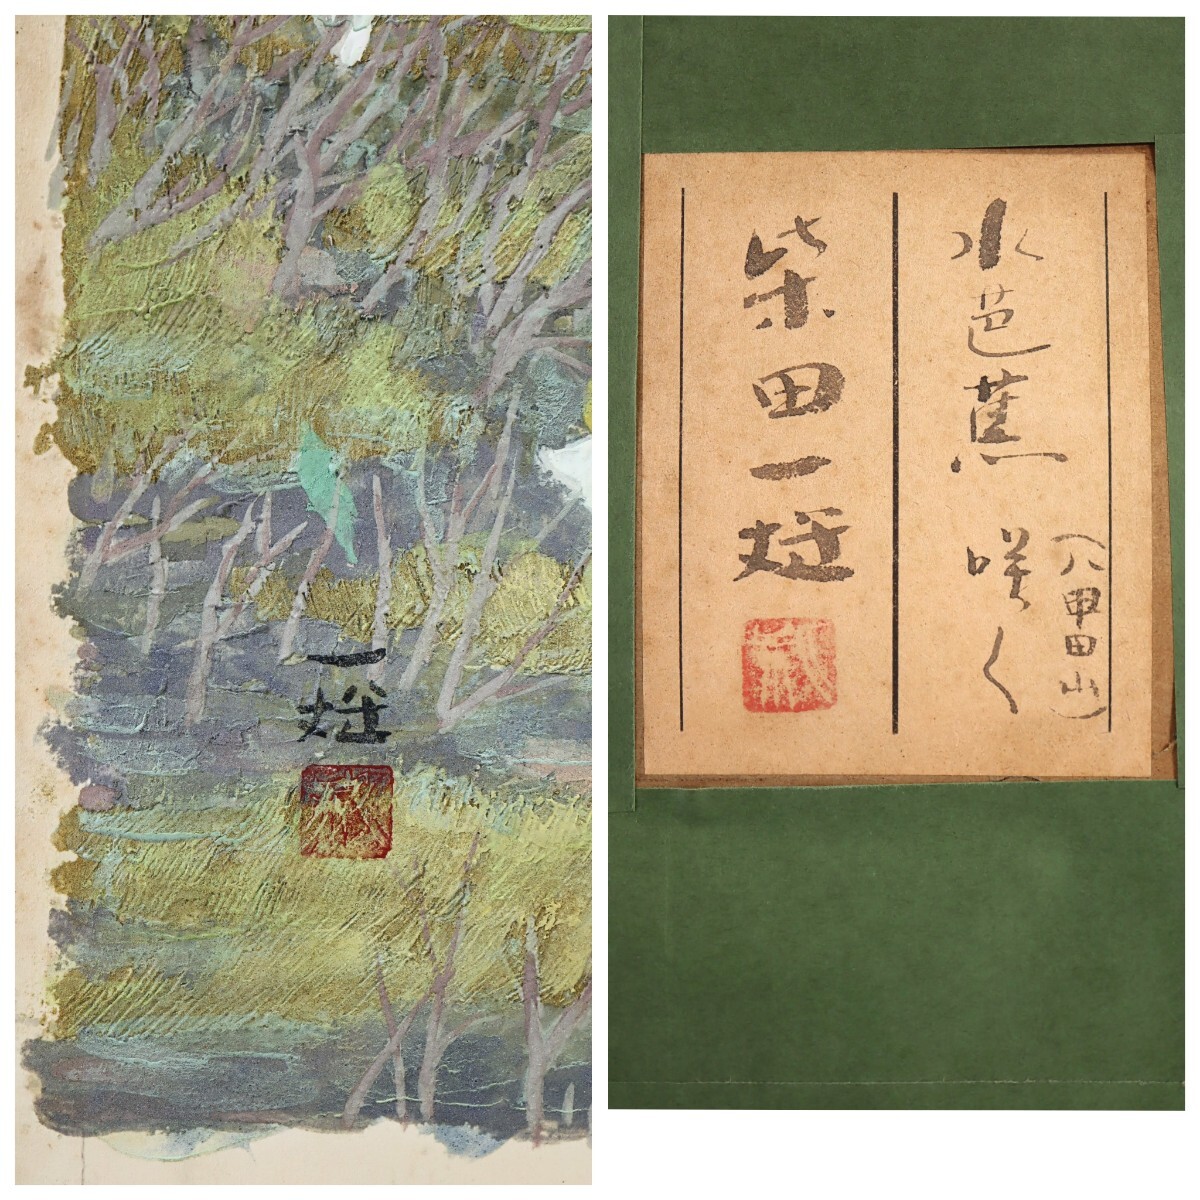 一雄
水芭蕉咲く
（八甲田山）
柴田一雄